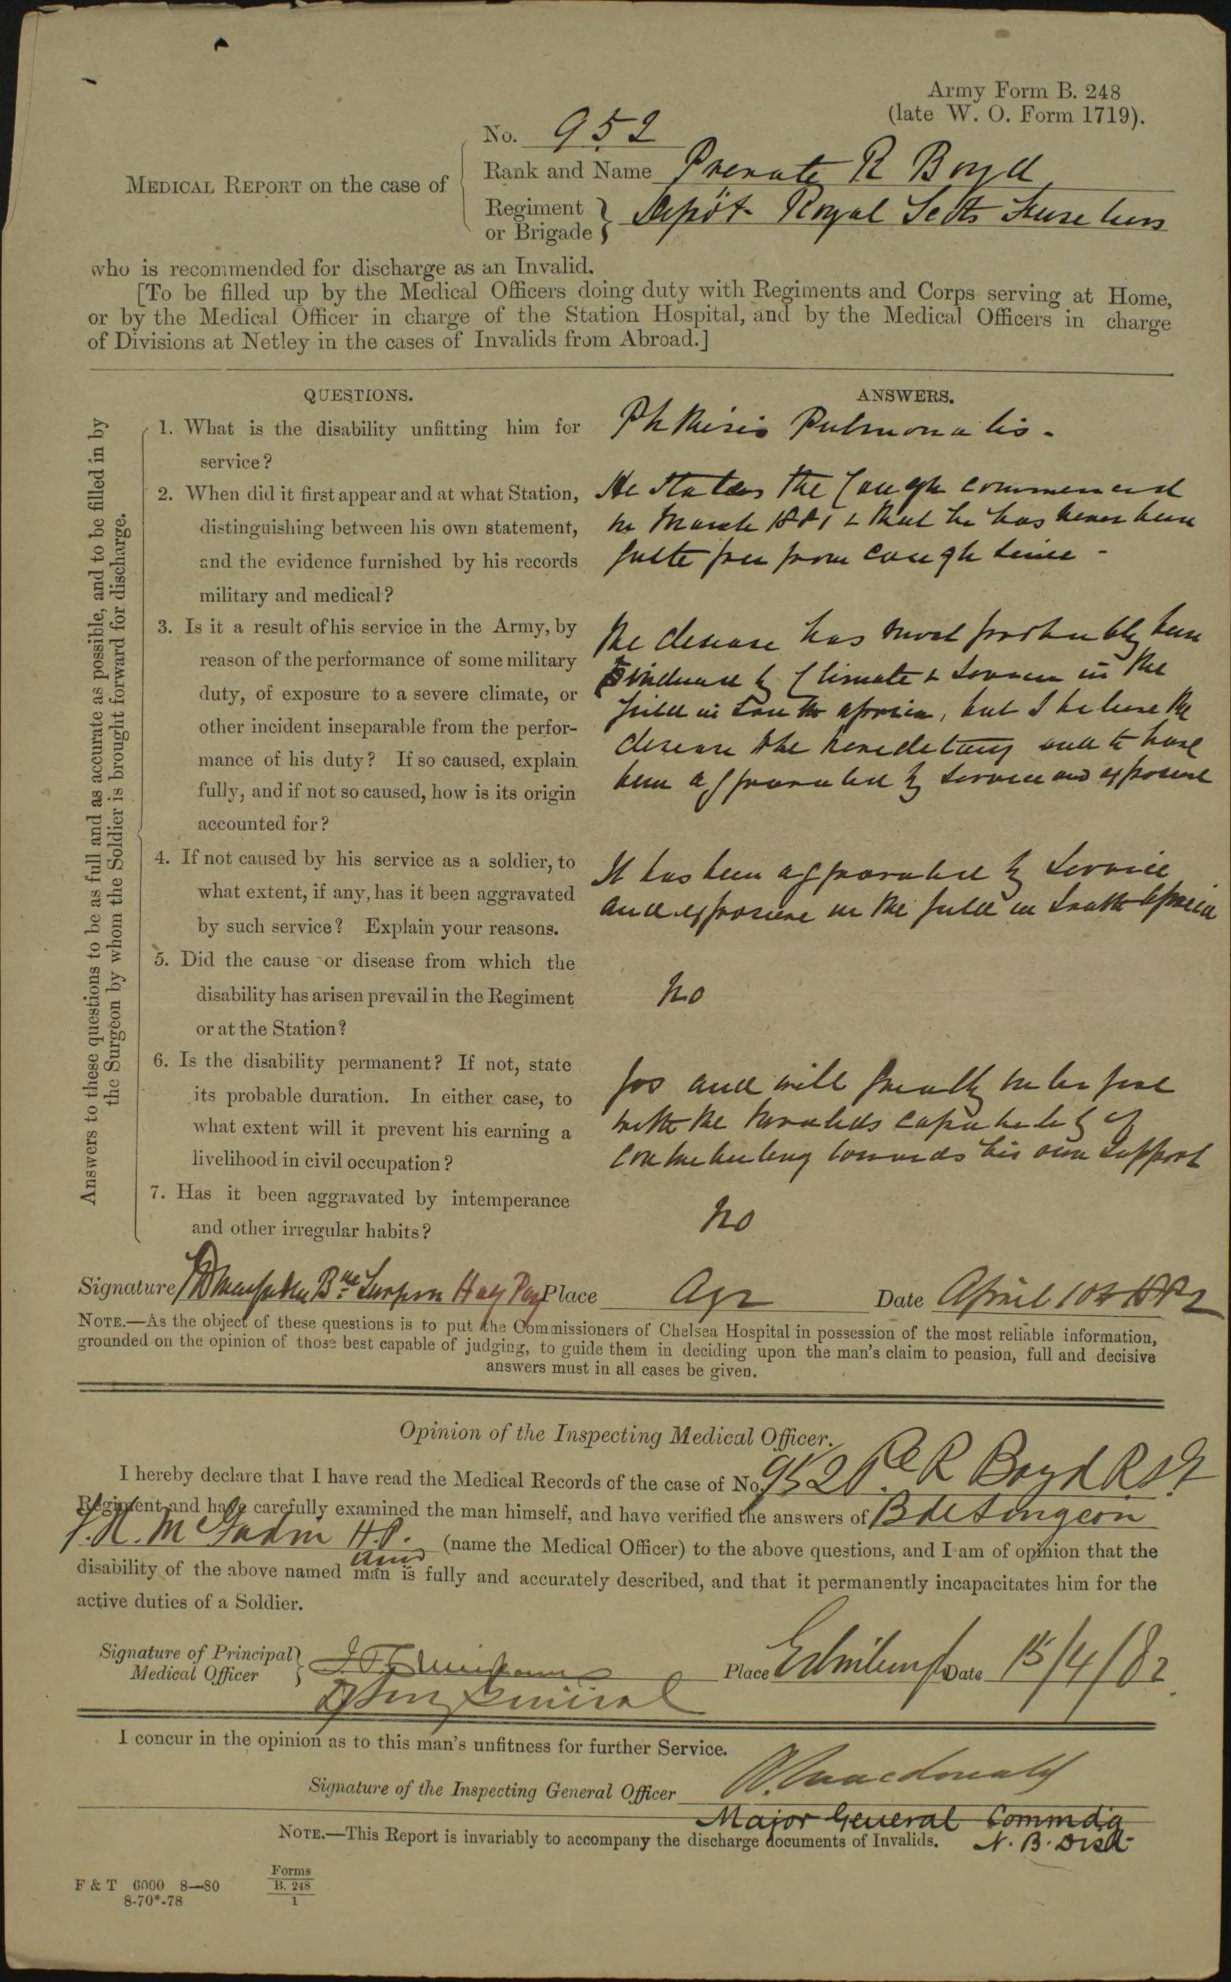 Army Form B. 248
(late W. O. Form 1719).
No. 952
MEDICAL REPORT on the case of
Rank and Name Private R Boyd
Regiment or Brigade Depôt Royal Scots Fuseliers
who is recommended for discharge as an Invalid.
[To be filled up by the Medical Officers doing duty with Regiments and Corps serving at Home,
or by the Medical Officer in charge of the Station Hospital, and by the Medical Officers in charge
of Divisions at Netley in the cases of Invalids from Abroad.]
Answers to these questions to be as full and as accurate as possible, and to be filled in by
the Surgeon by whom the Soldier is brought forward for discharge.
QUESTIONS.
ANSWERS.
1. What is the disability unfitting him for
service?
Phthisis Pulmonalis -
2. When did it first appear and at what Station,
distinguishing between his own statement,
and the evidence furnished by his records
military and medical?
He states the Cough commenced
in March 1881 & that he has never been
quite free from cough since -
3. Is it a result of his service in the Army, by
reason of the performance of some military
duty, of exposure to a severe climate, or
other incident inseparable from the perfor-
mance of his duty? If so caused, explain
fully, and if not so caused, how is its origin
accounted for?
The disease has most probably been
induced by Climate & Service in the
field in South Africa, but I believe the
disease to be hereditary and to have
been aggravated by Service and exposure
4. If not caused by his service as a soldier, to
what extent, if any, has it been aggravated
by such service? Explain your reasons.
It has been aggravated by Service
and exposure in the field in South Africa
5. Did the cause or disease from which the
disability has arisen prevail in the Regiment
or at the Station?
No
6. Is the disability permanent? If not, state
its probable duration. In either case, to
what extent will it prevent his earning a
livelihood in civil occupation?
Yes and will greatly interfere
with the invalids capability of
contributing towards his own support
7. Has it been aggravated by intemperance
and other irregular habits?
No
Signature Bde Surgeon Half Pay Place Ayr Date April 10th 1882
NOTE.—As the object of these questions is to put the Commissioners of Chelsea Hospital in possession of the most reliable information,
grounded on the opinion of those best capable of judging, to guide them in deciding upon the man's claim to pension, full and decisive
answers must in all cases be given.
Opinion of the Inspecting Medical Officer.
I hereby declare that I have read the Medical Records of the case of No. 952 Pte R Boyd R.S.F
Regiment and have carefully examined the man himself, and have verified the answers of Bde Surgeon
H.P. (name the Medical Officer) to the above questions, and I am of opinion that the
disability of the above named man is fully and accurately described, and that it permanently incapacitates him for the
active duties of a Soldier.
Signature of Principal Medical Officer
Place Edinburgh Date 15/4/82
Dy Surg General
I concur in the opinion as to this man's unfitness for further Service.
Signature of the Inspecting General Officer Macdonald
Major General Commdg
NOTE.—This Report is invariably to accompany the discharge documents of Invalids.
N. B. Dist
F & T 6000 8—80
8-70*-78
Forms
B. 248
1